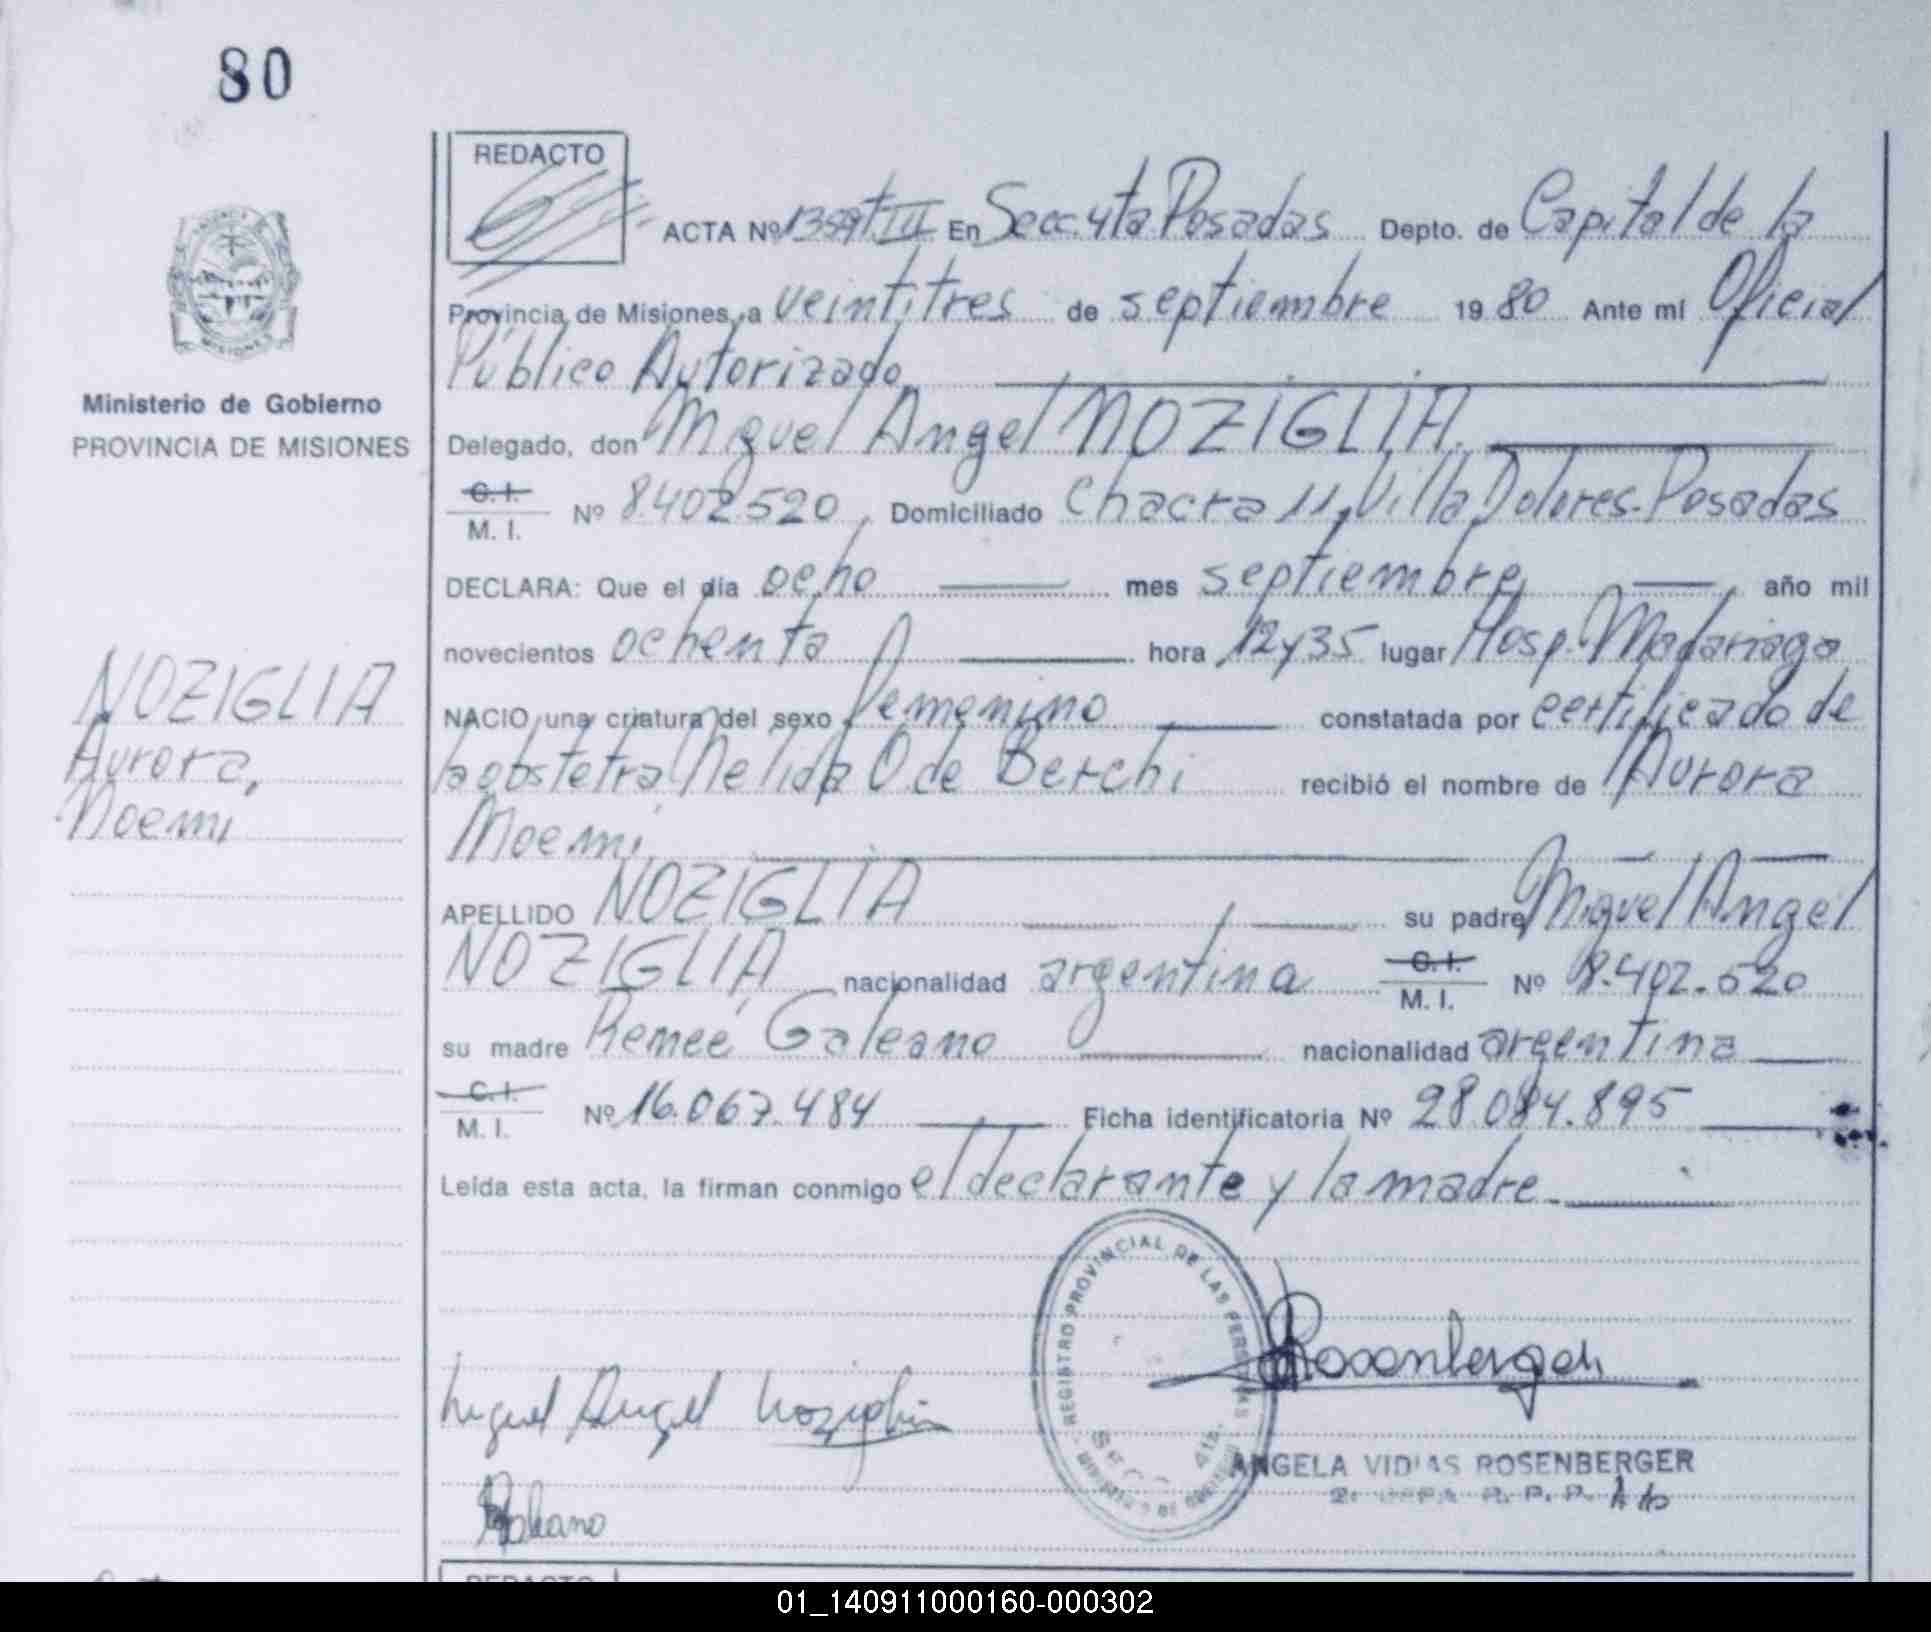 80
REDACTO
ACTA Nº 1359 t III En Secc. 4ta Posadas Depto. de Capital de la
Provincia de Misiones, a veintitres de septiembre 19 80 Ante mi Oficial
Público Autorizado
Ministerio de Gobierno
PROVINCIA DE MISIONES
Delegado, don Miguel Angel NOZIGLIA.
C. I.
M. I. Nº 8.402.520, Domiciliado Chacra 11, Villa Dolores-Posadas
DECLARA: Que el día ocho mes septiembre, año mil
novecientos ochenta hora 12y35 lugar Hosp. Madariaga
NOZIGLIA
Aurora,
Noemi
NACIO una criatura del sexo femenino constatada por certificado de
la obstetra Nelida O. de Berchi recibió el nombre de Aurora
Noemi
APELLIDO NOZIGLIA su padre Miguel Angel
NOZIGLIA nacionalidad argentina C. I. M. I. Nº 8.402.520
su madre Reneé Galeano nacionalidad argentina
C. I.
M. I. Nº 16.067.484 Ficha identificatoria Nº 28.084.895
Leída esta acta, la firman conmigo el declarante y la madre.
REGISTRO PROVINCIAL DE LAS PERSONAS
Rosenberger
Miguel Angel Noziglia
ANGELA VIDIAS ROSENBERGER
RGaleano
REDACTO
01_140911000160-000302